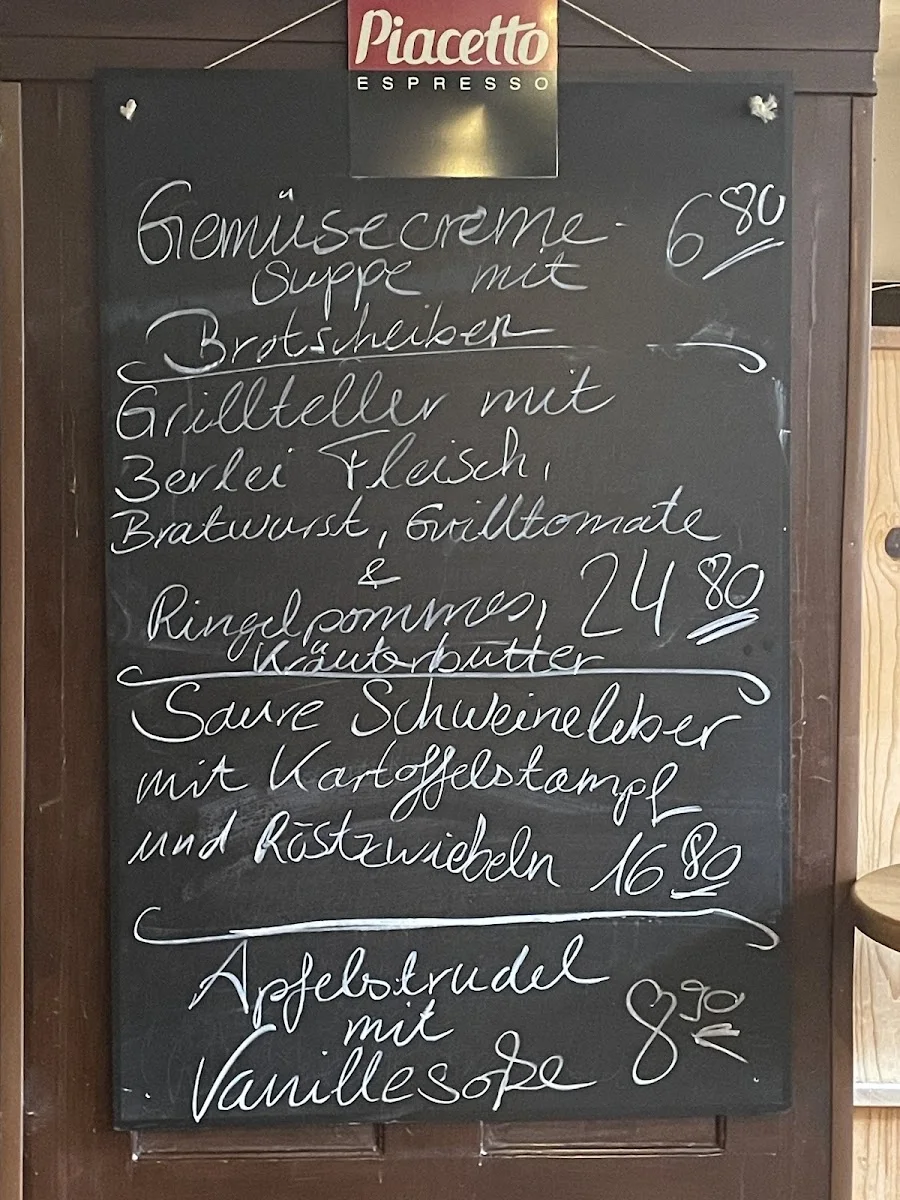 Piacetto
ESPRESSO
Gemüsecreme- 6 80
suppe mit
Brotscheiben
Grillteller mit
3erlei Fleisch,
Bratwurst, Grilltomate
&
Ringelpommes, 24 80
Kräuterbutter
Saure Schweineleber
mit Kartoffelstampf
und Röstzwiebeln 16 80
Apfelstrudel
mit 8 90
Vanillesoße